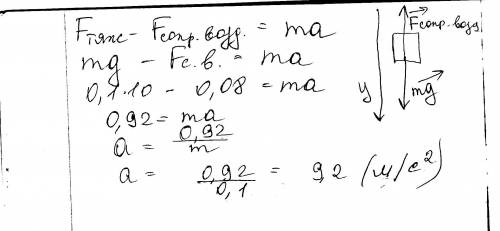 Fтяж - Fсопр. возд. = ma
mg - Fс.в. = ma
0,1·10 - 0,08 = ma
0,92 = ma
a = 0,92/m
a = 0,92/0,1 = 9,2 (м/с²)
Fсопр. возд
y
mg